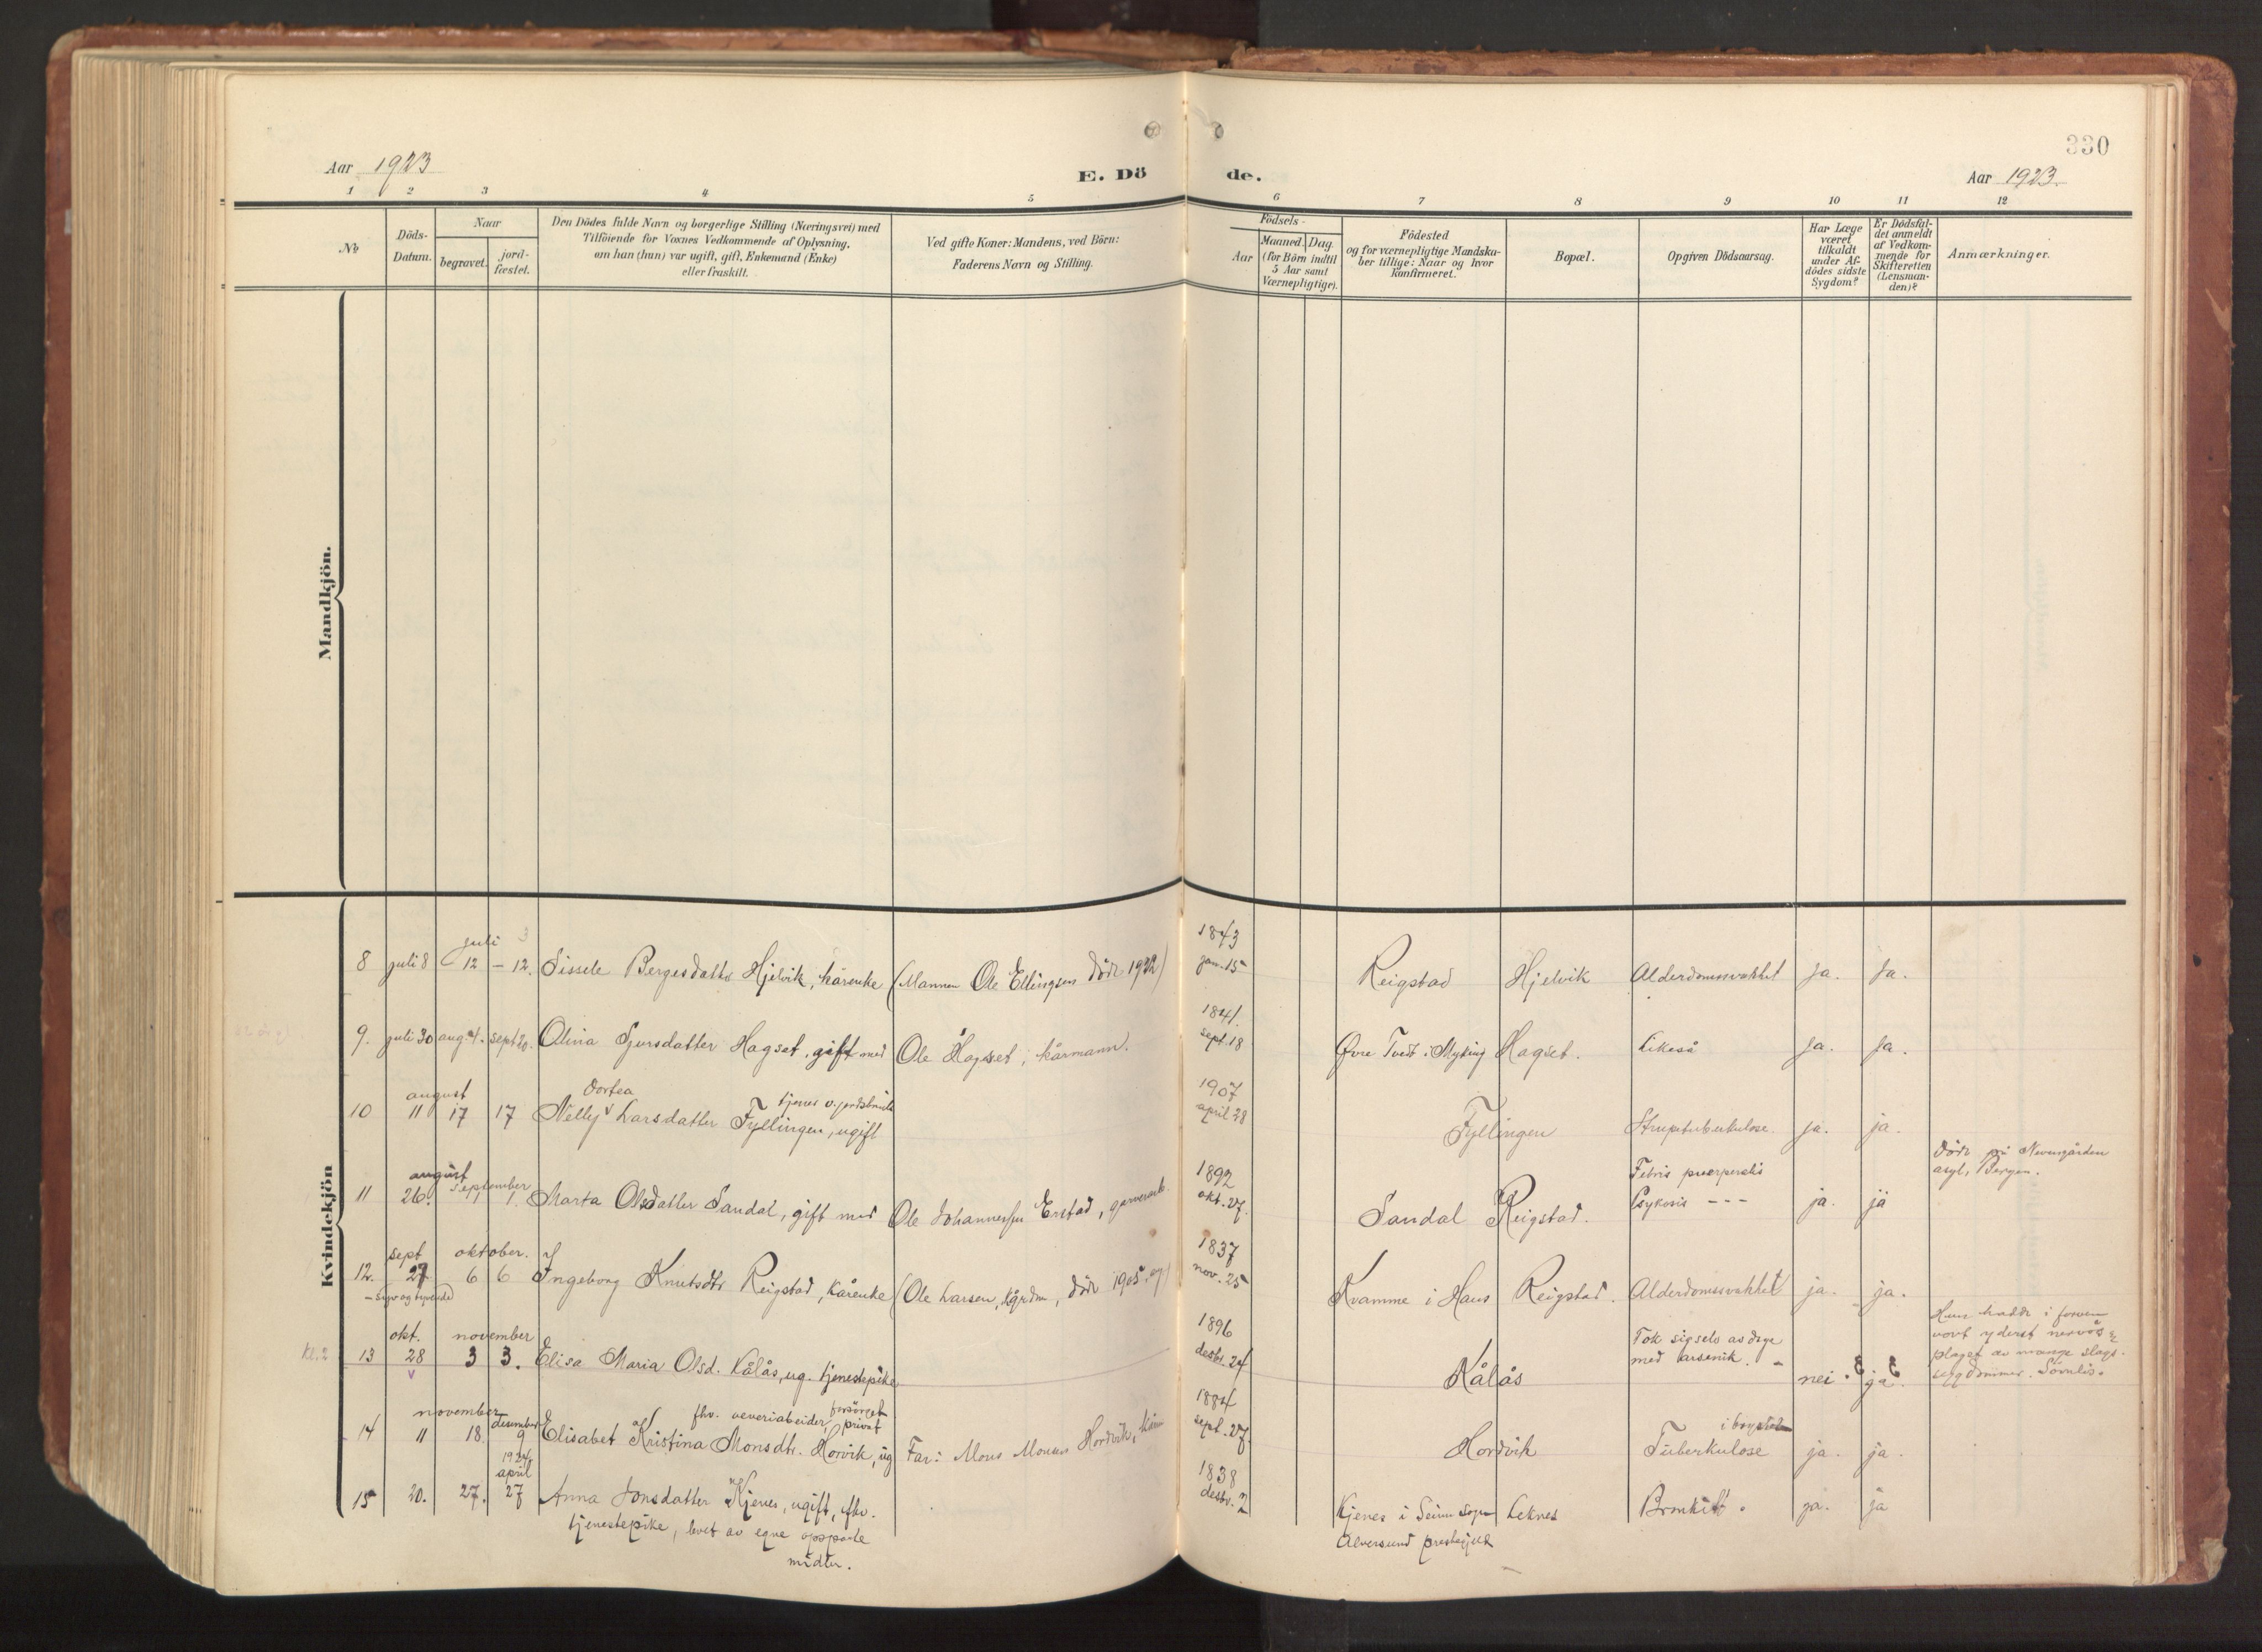 330
Aar 1923
E. Dö de.
Aar 1923.
1 2 3 4 5 6 7 8 9 10 11 12
No
Döds-
Datum.
Naar
begravet.
jord-
fæstet.
Den Dödes fulde Navn og borgerlige Stilling (Næringsvei) med
Tilföiende for Voxnes Vedkommende af Oplysning,
om han (hun) var ugift, gift, Enkemand (Enke)
eller fraskilt.
Ved gifte Koner: Mandens, ved Börn:
Faderens Navn og Stilling.
Födsels-
Aar
Maaned. Dag.
(for Börn indtil
5 Aar samt
Værnepligtige).
Födested
og for værnepligtige Mandska-
ber tillige: Naar og hvor
konfirmeret.
Bopæl.
Opgiven Dödsaarsag.
Har Læge
været
tilkaldt
under Af-
dödes sidste
Sygdom?
Er Dödsfal-
det anmeldt
af Vedkom-
mende for
Skifteretten
(Lensman-
den)?
Anmærkninger.
Mandkjön.
Kvindekjön
juli
1843
8 juli 8 12 - 12. Sissele Bergesdatter Hjelvik, kårenke (Mannen Ole Ellingsen död 1922) jan. 15 Reigstad Hjelvik Alderdomssvakhet ja. ja.
1841.
9. juli 30 aug. 4. sept 20. Olina Sjursdatter Hagset, gift med Ole Hagset, kårmann. sept. 18 Øvre Tveit i Myking Hagset. Likeså ja. ja.
august Dortea tjener v. jordbruk 1907
10 11 17 17 Nelly Larsdatter Fyllingen, ugift april 28 Fyllingen Strupetuberkulose ja. ja.
august september 1892 Febris puerperalis Döde på Neevengården
asyl, Bergen.
11 26. 1. Marta Olsdatter Sandal, gift med Ole Johannessen Erstad, okt. 27. Sandal Reigstad. Psykosis - - - ja. ja
sept oktober. 1837
12. 27 6 6 Ingeborg Knutsdtr Reigstad, kårenke (Ole Larsen, död 1905 nov. 25 Kvamme i Haus Reigstad. Alderdomssvakhet ja. ja.
- syv og tyvende)
okt. november 1896 Tok sig selv av dage
med arsenik. -
Kl. 2 13 28 3 3. Elisa Maria Olsd. Kålås, ug. tjenestepike desbr. 24 Kålås nei. ja.
Hun hadde i forveien
vært yderst nervös og
plaget av mange slags
sygdommer. Sövnlös.
november desember fhv. veveriabeider, forsörget privat 1884 i brystet
14 11 18 9 Elisabet Kristina Monsdtr. Horvik, ug Far: Mons Monsen Hordvik, sept. 27. Hordvik Tuberkulose ja. ja.
1924
april 1838
15 20. 27. 27 Anna Jonsdatter Kjenes, ugift, fhv. desbr. 2 Kjenes i Seim sogn Leknes Bronkitt. ja. ja
tjenestepike, levet av egne opsparte Alversund prestegjeld
midler.